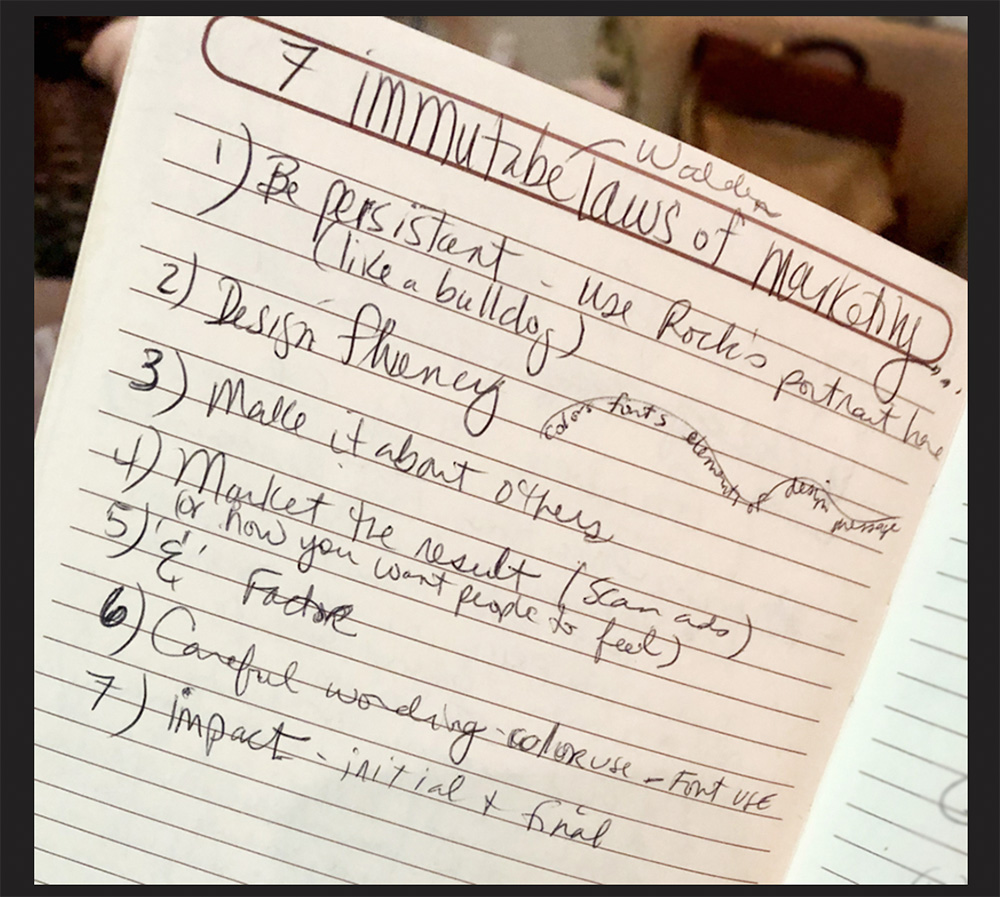 7 immutabe laws of marketing...
Walden
1) Be persistent - use Rock's portrait here
(like a bulldog)
2) Design fluency
colors fonts elements of design message
3) Make it about others
4) Market the result (Scan ads)
or how you want people to feel)
5) '&' Factor
6) Careful wording - color use - Font use
7) impact - initial & final